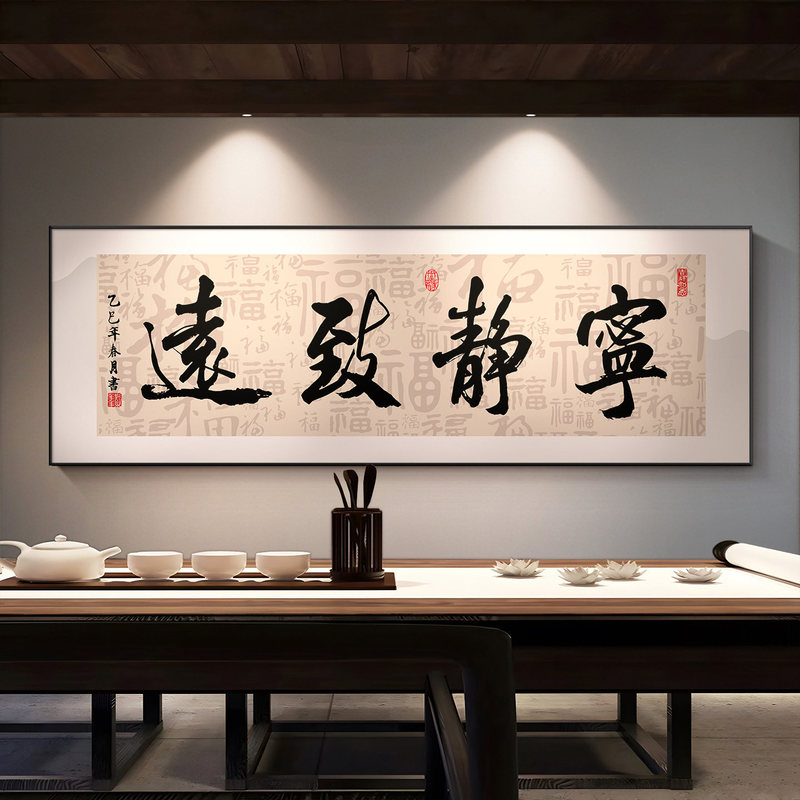 寧靜致遠
乙巳年春月書